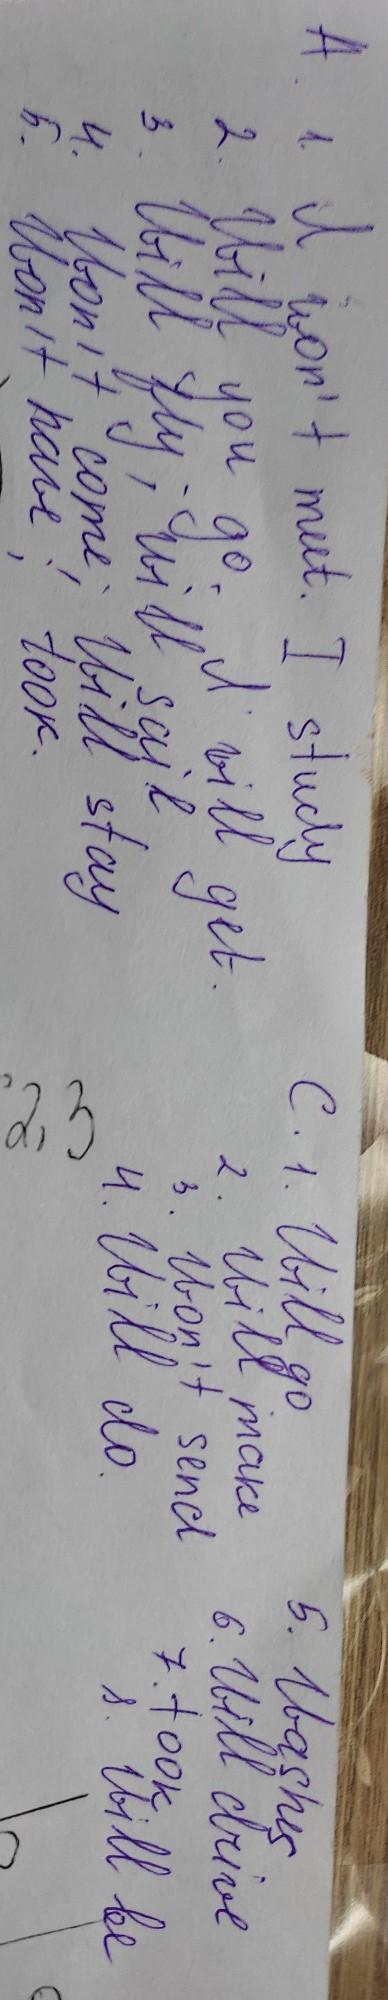 A. 1. I won't meet. I study
2. Will you go, I will get.
3. Will fly; will sail
4. Won't come; Will stay
5. Won't have; took.
C. 1. Will go
2. Will make
3. Won't send
4. Will do.
5. Washes
6. Will drive
7. took
8. Will be
2,3